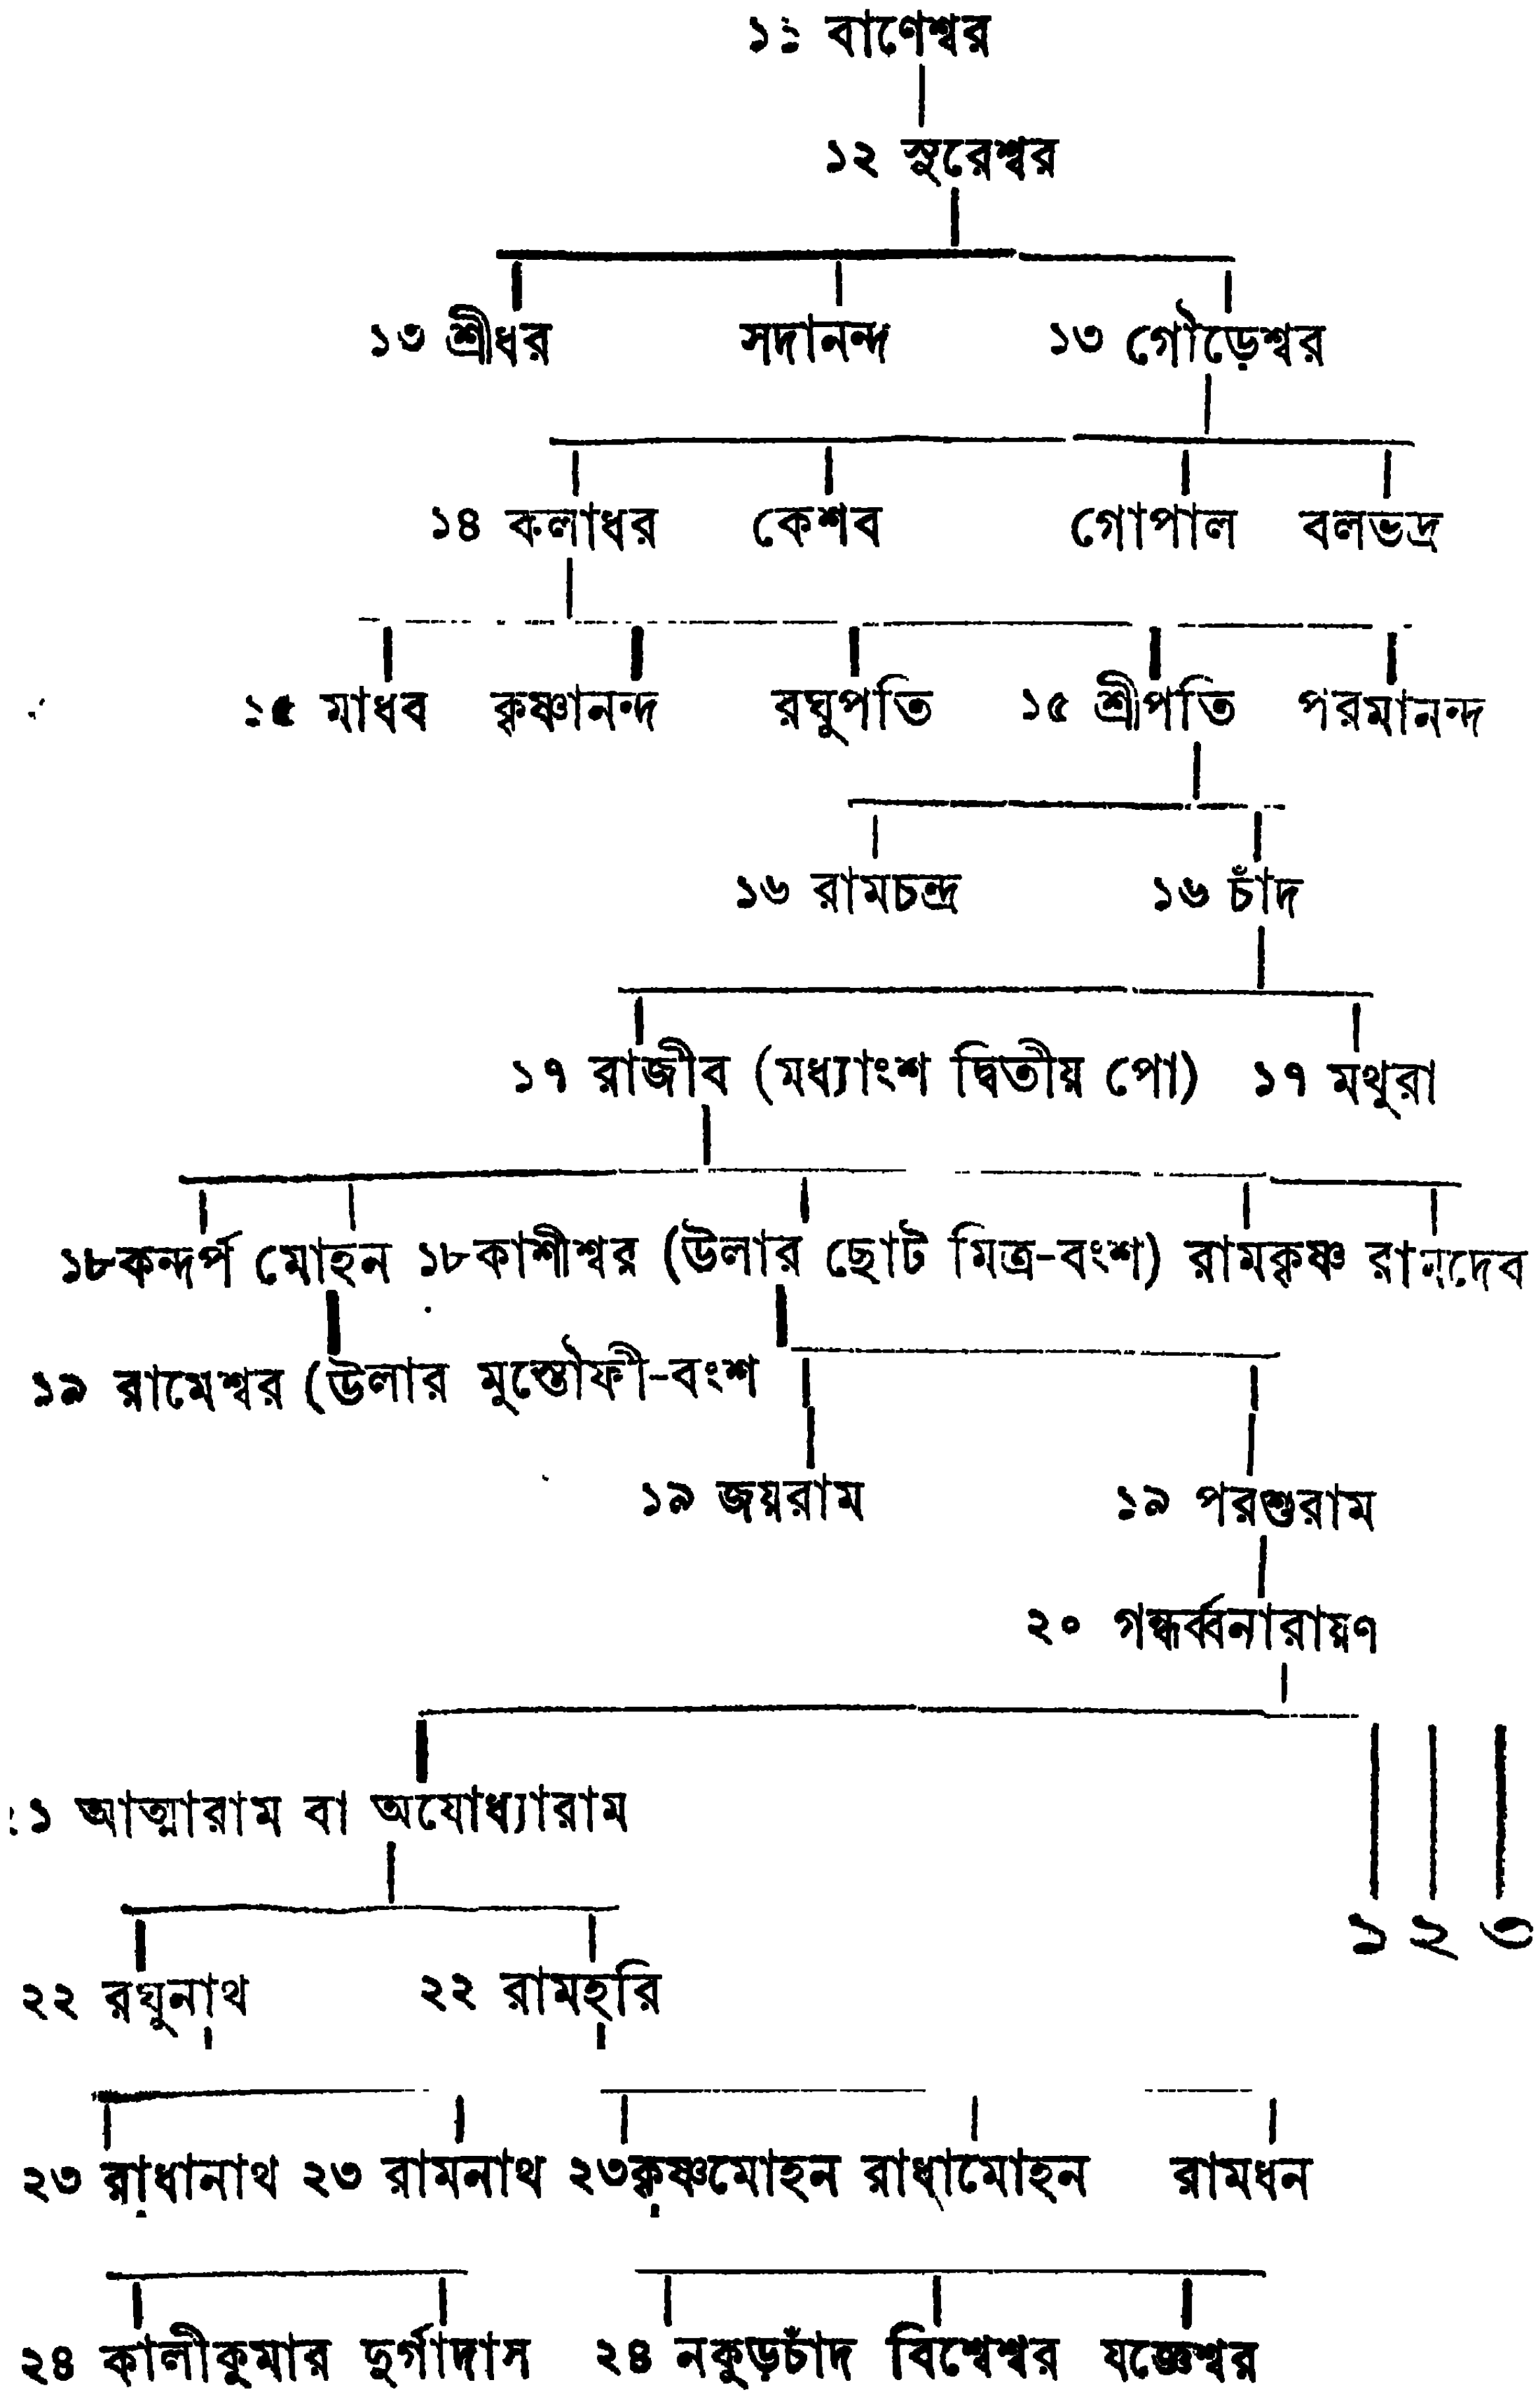 ১১ বাণেশ্বর
১২ সুরেশ্বর
১৩ শ্রীধর সদানন্দ ১৩ গৌড়েশ্বর
১৪ কলাধর কেশব গোপাল বলভদ্র
১৫ মাধব কৃষ্ণানন্দ রঘুপতি ১৫ শ্রীপতি পরমানন্দ
১৬ রামচন্দ্র ১৬ চাঁদ
১৭ রাজীব (মধ্যাংশ দ্বিতীয় পো) ১৭ মথুরা
১৮কন্দর্প মোহন ১৮কাশীশ্বর (উলার ছোট মিত্র-বংশ) রামকৃষ্ণ রামদেব
১৯ রামেশ্বর (উলার মুস্তৌফী-বংশ
১৯ জয়রাম ১৯ পরশুরাম
২০ গন্ধর্ব্বনারায়ণ
২১ আত্মারাম বা অযোধ্যারাম
১ ২ ৩
২২ রঘুনাথ ২২ রামহরি
২৩ রাধানাথ ২৩ রামনাথ ২৩কৃষ্ণমোহন রাধামোহন রামধন
২৪ কালীকুমার দুর্গাদাস ২৪ নকুড়চাঁদ বিশ্বেশ্বর যজ্ঞেশ্বর